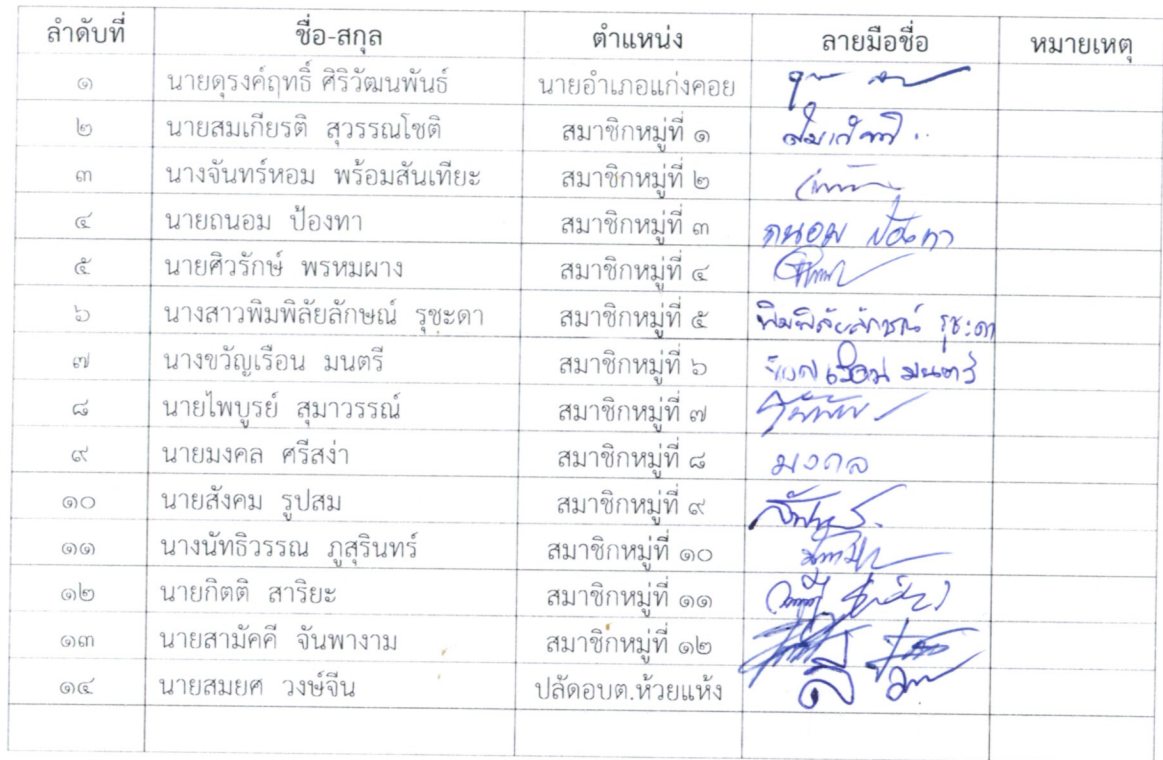 ลำดับที่ ชื่อ-สกุล ตำแหน่ง ลายมือชื่อ หมายเหตุ
๑ นายดุรงค์ฤทธิ์ ศิริวัฒนพันธ์ นายอำเภอแก่งคอย
๒ นายสมเกียรติ สุวรรณโชติ สมาชิกหมู่ที่ ๑ สมเกียรติ
๓ นางจันทร์หอม พร้อมสันเทียะ สมาชิกหมู่ที่ ๒
๔ นายถนอม ป้องทา สมาชิกหมู่ที่ ๓ ถนอม ป้องทา
๕ นายศิวรักษ์ พรหมผาง สมาชิกหมู่ที่ ๔
๖ นางสาวพิมพิลัยลักษณ์ รุชะดา สมาชิกหมู่ที่ ๕ พิมพิลัยลักษณ์ รุชะดา
๗ นางขวัญเรือน มนตรี สมาชิกหมู่ที่ ๖ ขวัญเรือน มนตรี
๘ นายไพบูรย์ สุมาวรรณ์ สมาชิกหมู่ที่ ๗
๙ นายมงคล ศรีสง่า สมาชิกหมู่ที่ ๘ มงคล
๑๐ นายสังคม รูปสม สมาชิกหมู่ที่ ๙
๑๑ นางนัทธิวรรณ ภูสุรินทร์ สมาชิกหมู่ที่ ๑๐
๑๒ นายกิตติ สาริยะ สมาชิกหมู่ที่ ๑๑
๑๓ นายสามัคคี จันพางาม สมาชิกหมู่ที่ ๑๒
๑๔ นายสมยศ วงษ์จีน ปลัดอบต.ห้วยแห้ง